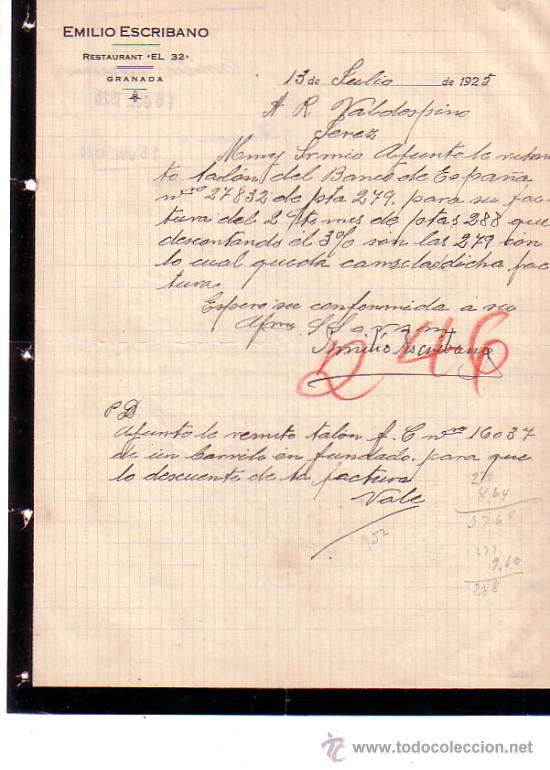 EMILIO ESCRIBANO
RESTAURANT «EL 32»
GRANADA
13 de Julio de 1925
A R Valdespino
Jerez
Muy Sr mio Afunto le
to talón del Banco de España
nº 27832 de pta 279, para su fac-
tura del 2 de mes de ptas 288 que
descontando el 3% son las 279 con
lo cual queda canselada dicha fac-
tura
Espero su confonmida a su
Afmo S S
Emilio Escribano
246
PD
Afunto le remito talón f. C nº 16037
de un barrile en fundado. para que
lo descuente de la factura
Vale
952
279
8,64
5764
279
9,60
288
www.todocoleccion.net